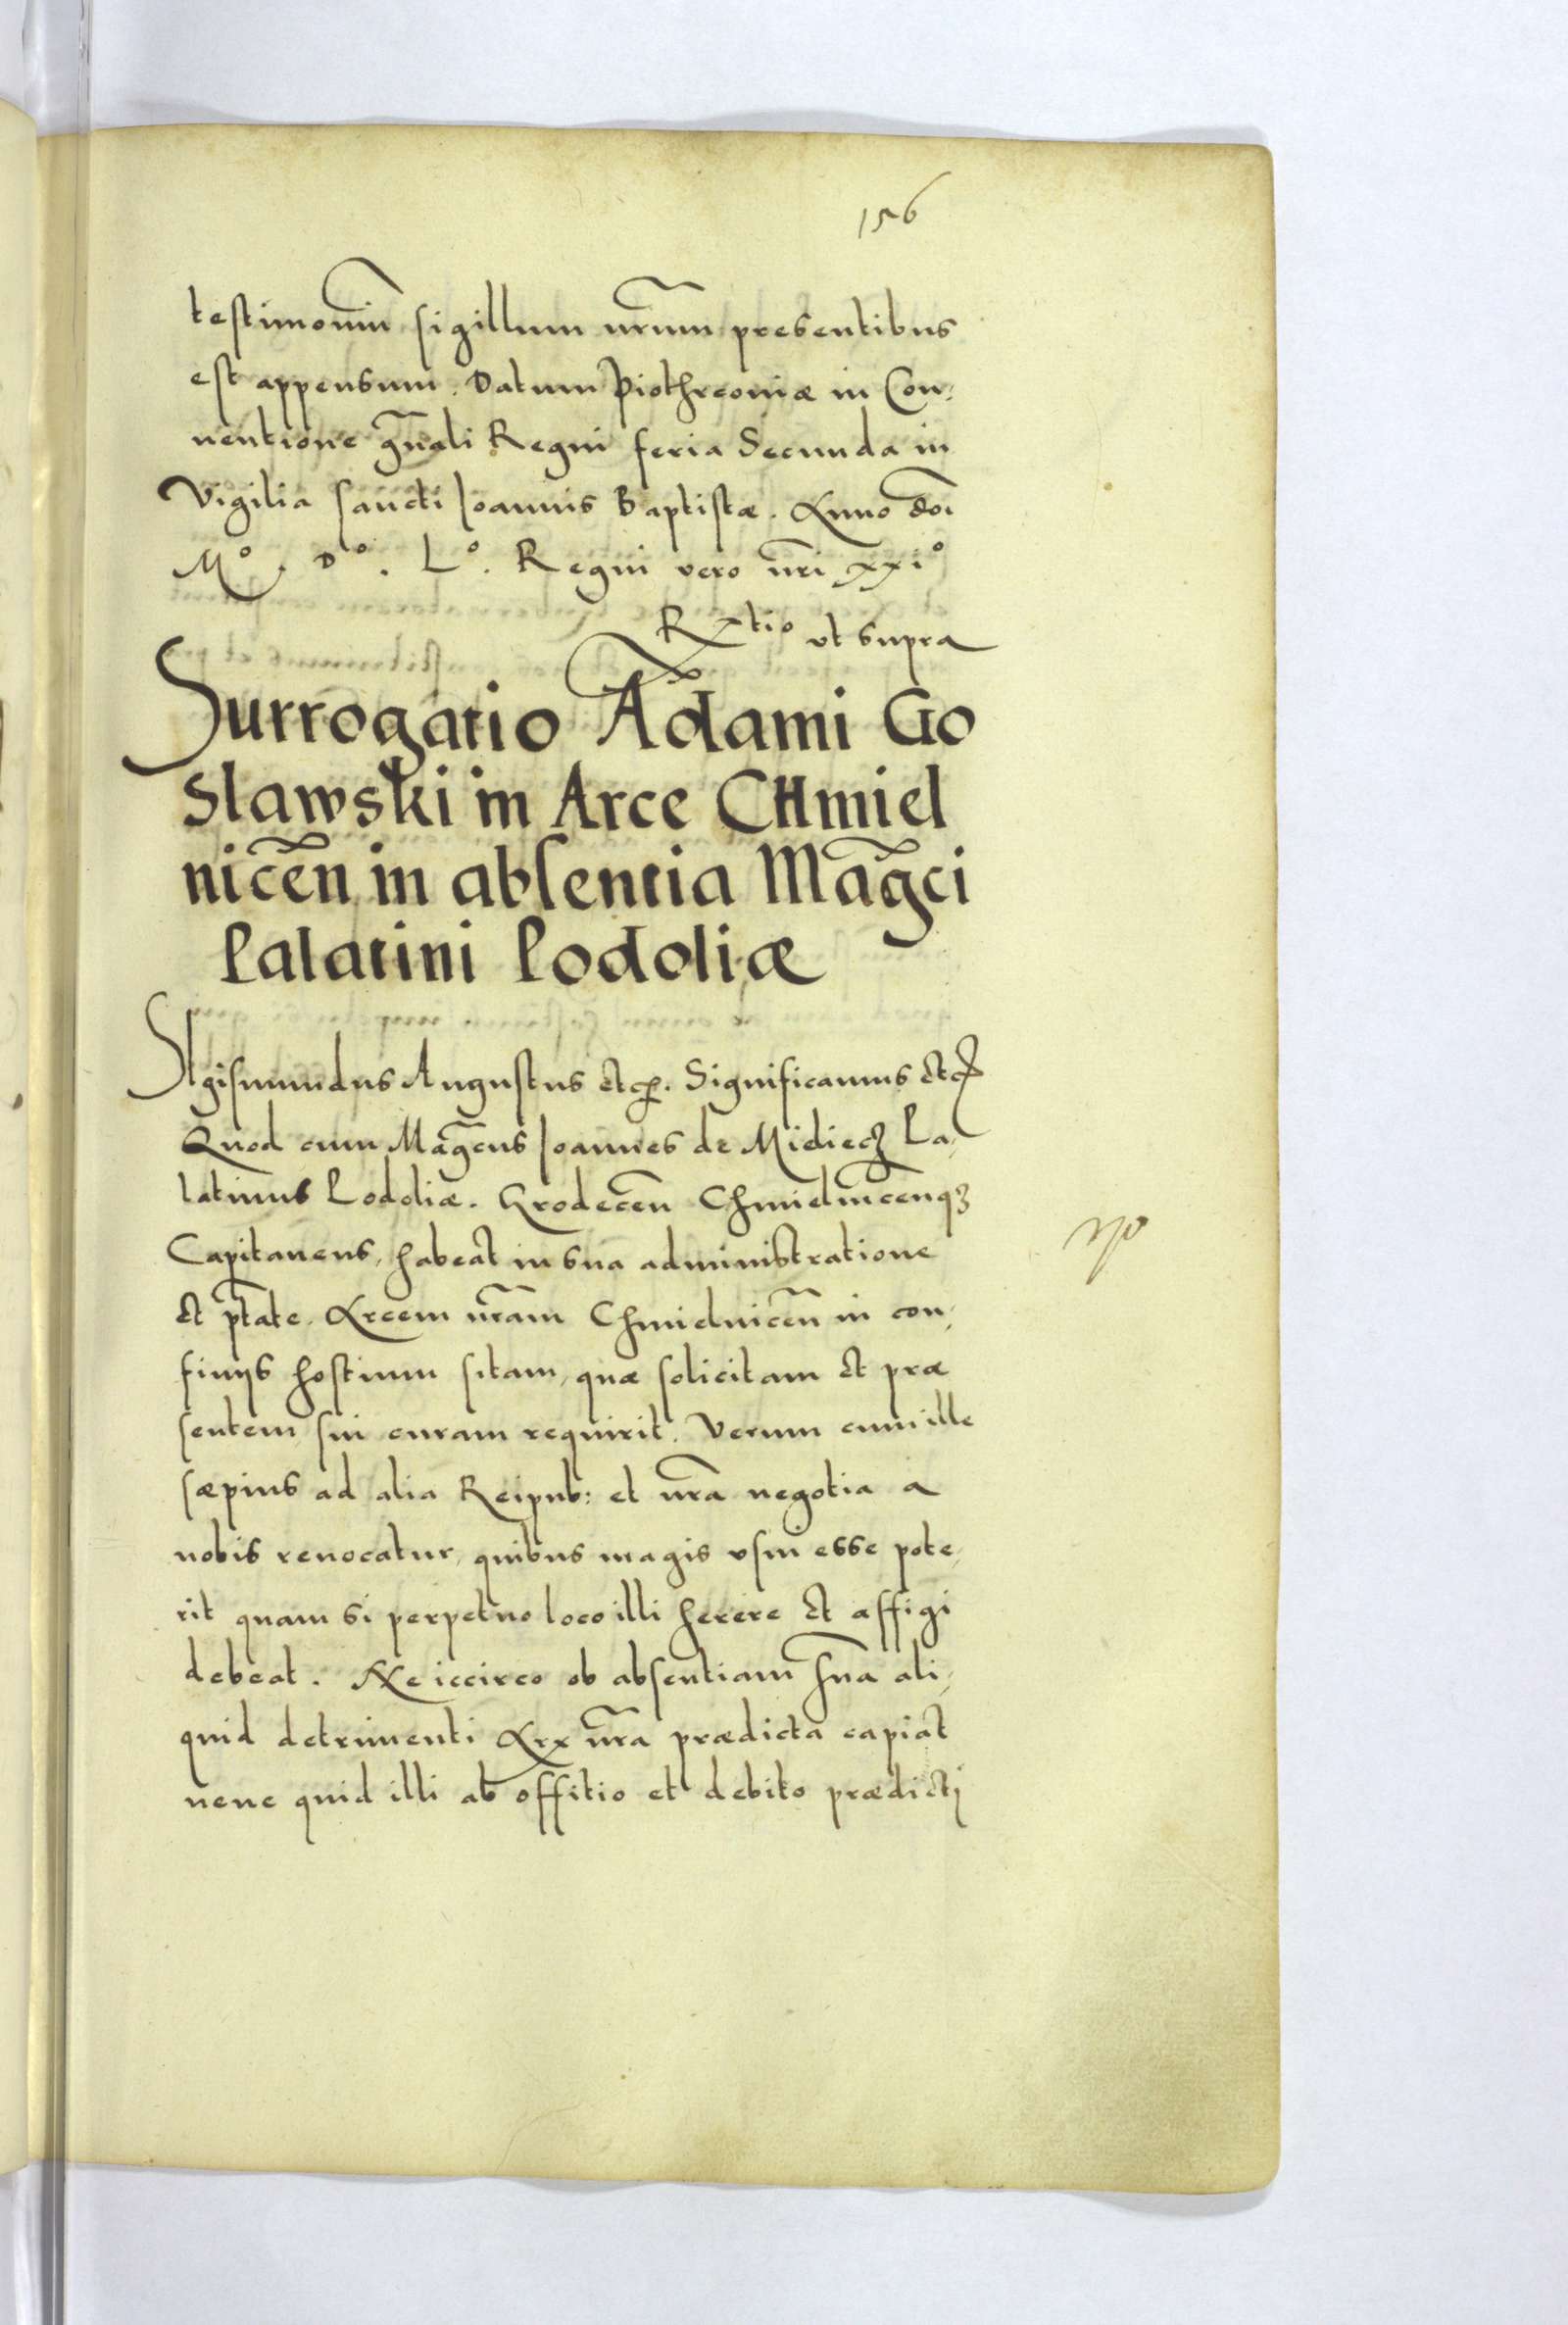 156
testimoniũ sigillum nr̃um presentibus
est appensum. Datum Piothrcoviæ in Con,
ventione gñali Regni feria Secunda in
Vigilia sancti Joannis Baptistæ. Anno dõi
Mº. Dº. Lº. Regni vero nr̃i xxiº
Rxtio vt supra
Surrogatio Adami Go
slawski in Arce CHmiel
niceñ in absentia Mag̃ci
Palatini Podoliæ
Sigismundus Augustus etc. Significamus etc
Quod cum Mag̃cus Joannes de Midiecz Pa,
latinus Podoliæ. Grodeceñ Chmielniceñqʒ
Capitaneus, habeat in sua administratione
et pt̃ate. Arcem nr̃am Chmielniceñ in con,
finijs hostium sitam, quæ solicitam et præ
sentem sui curam requirit. Verum cum ille
sæpius ad alia Reipub: et nr̃a negotia a
nobis revocatur, quibus magis vsui esse pote,
rit quam si perpetuo loco illi herere et affigi
debeat. Ne iccirco ob absentiam suã ali,
quid detrimenti Arx nr̃a prædicta capiat
neve quid illi ab offitio et debito prædicti